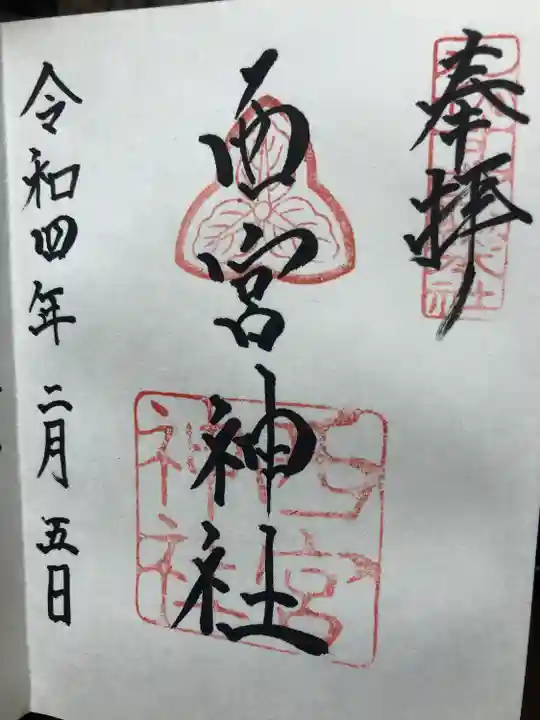 奉拝
西宮神社
令和四年二月五日
西宮
神社